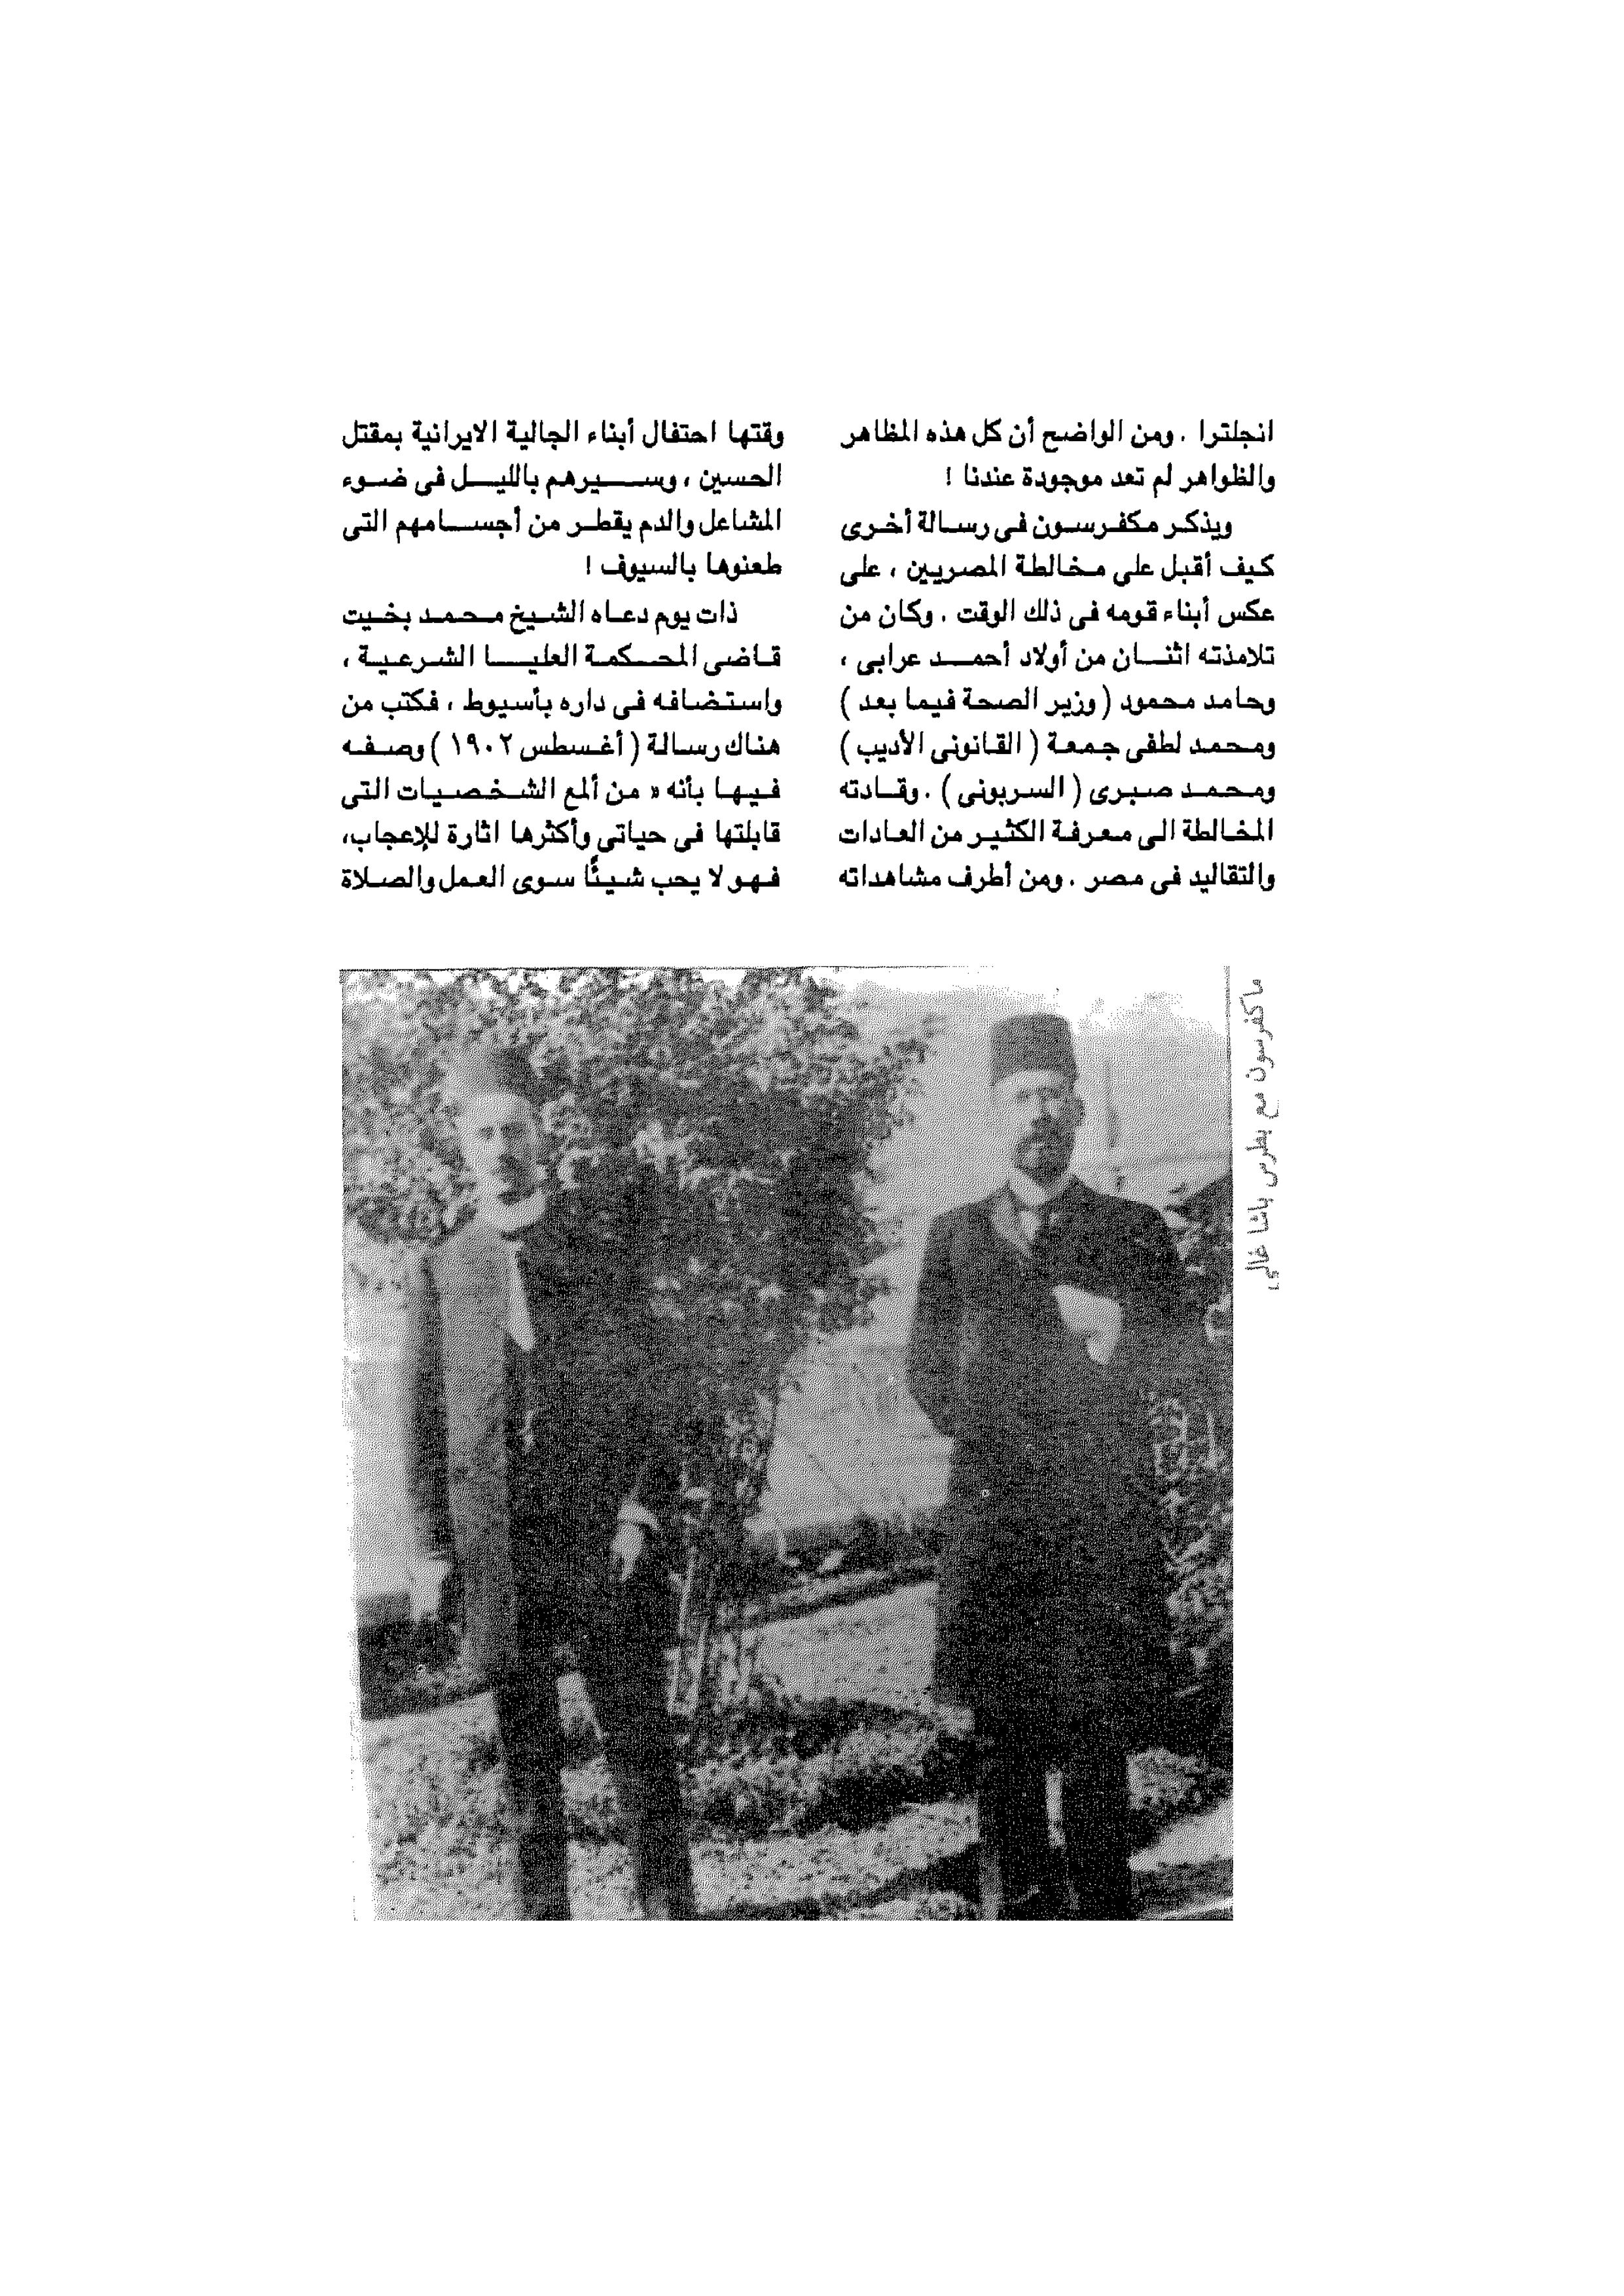 انجلترا . ومن الواضح أن كل هذه المظاهر
والظواهر لم تعد موجودة عندنا !
ويذكر مكفرسون فى رسالة أخرى
كيف أقبل على مخالطة المصريين ، على
عكس أبناء قومه فى ذلك الوقت . وكان من
تلامذته اثنان من أولاد أحمد عرابى ،
وحامد محمود ( وزير الصحة فيما بعد )
ومحمد لطفى جمعة ( القانونى الأديب )
ومحمد صبرى ( السربونى ) . وقادته
المخالطة الى معرفة الكثير من العادات
والتقاليد فى مصر . ومن أطرف مشاهداته
وقتها احتفال أبناء الجالية الايرانية بمقتل
الحسين ، وسيرهم بالليل فى ضوء
المشاعل والدم يقطر من أجسامهم التى
طعنوها بالسيوف !
ذات يوم دعاه الشيخ محمد بخيت
قاضى المحكمة العليا الشرعية ،
واستضافه فى داره بأسيوط ، فكتب من
هناك رسالة ( أغسطس ١٩٠٢ ) وصفه
فيها بأنه « من ألمع الشخصيات التى
قابلتها فى حياتى وأكثرها اثارة للإعجاب،
فهو لا يحب شيئًا سوى العمل والصلاة
ماكفرسون مع بطرس باشا غالي